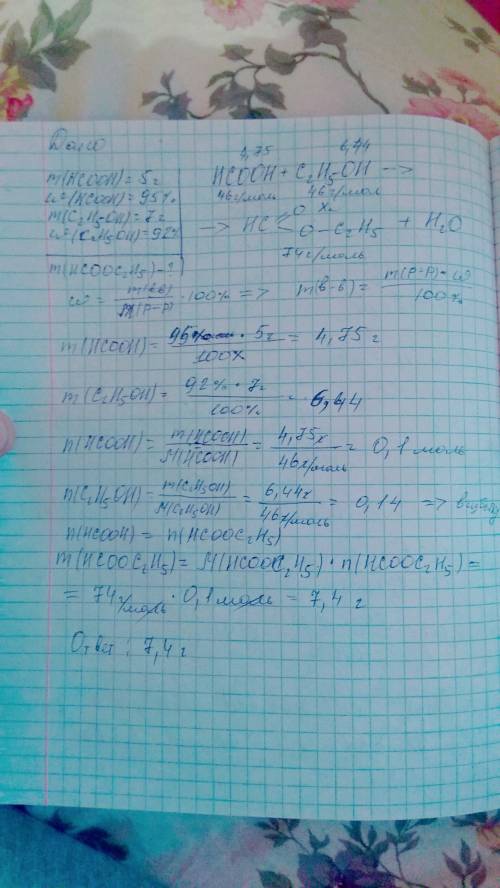 Дано
m(HCOOH) = 5г
ω(HCOOH) = 95%
m(C₂H₅OH) = 7г
ω(C₂H₅OH) = 92%
m(HCOOC₂H₅) - ?
4,75 6,44
HCOOH + C₂H₅OH —>
46г/моль 46г/моль
xг
—> HC O O-C₂H₅ + H₂O
74г/моль
ω = m(в-в)/m(р-р) · 100% => m(в-в) = m(р-р) · ω / 100%
m(HCOOH) = 95% · 5г / 100% = 4,75г
m(C₂H₅OH) = 92% · 7г / 100% = 6,44
n(HCOOH) = m(HCOOH)/M(HCOOH) = 4,75г / 46г/моль = 0,1 моль
n(C₂H₅OH) = m(C₂H₅OH)/M(C₂H₅OH) = 6,44г / 46г/моль = 0,14 =>
n(HCOOH) = n(HCOOC₂H₅)
m(HCOOC₂H₅) = M(HCOOC₂H₅) · n(HCOOC₂H₅) =
= 74г/моль · 0,1 моль = 7,4 г
Ответ: 7,4 г